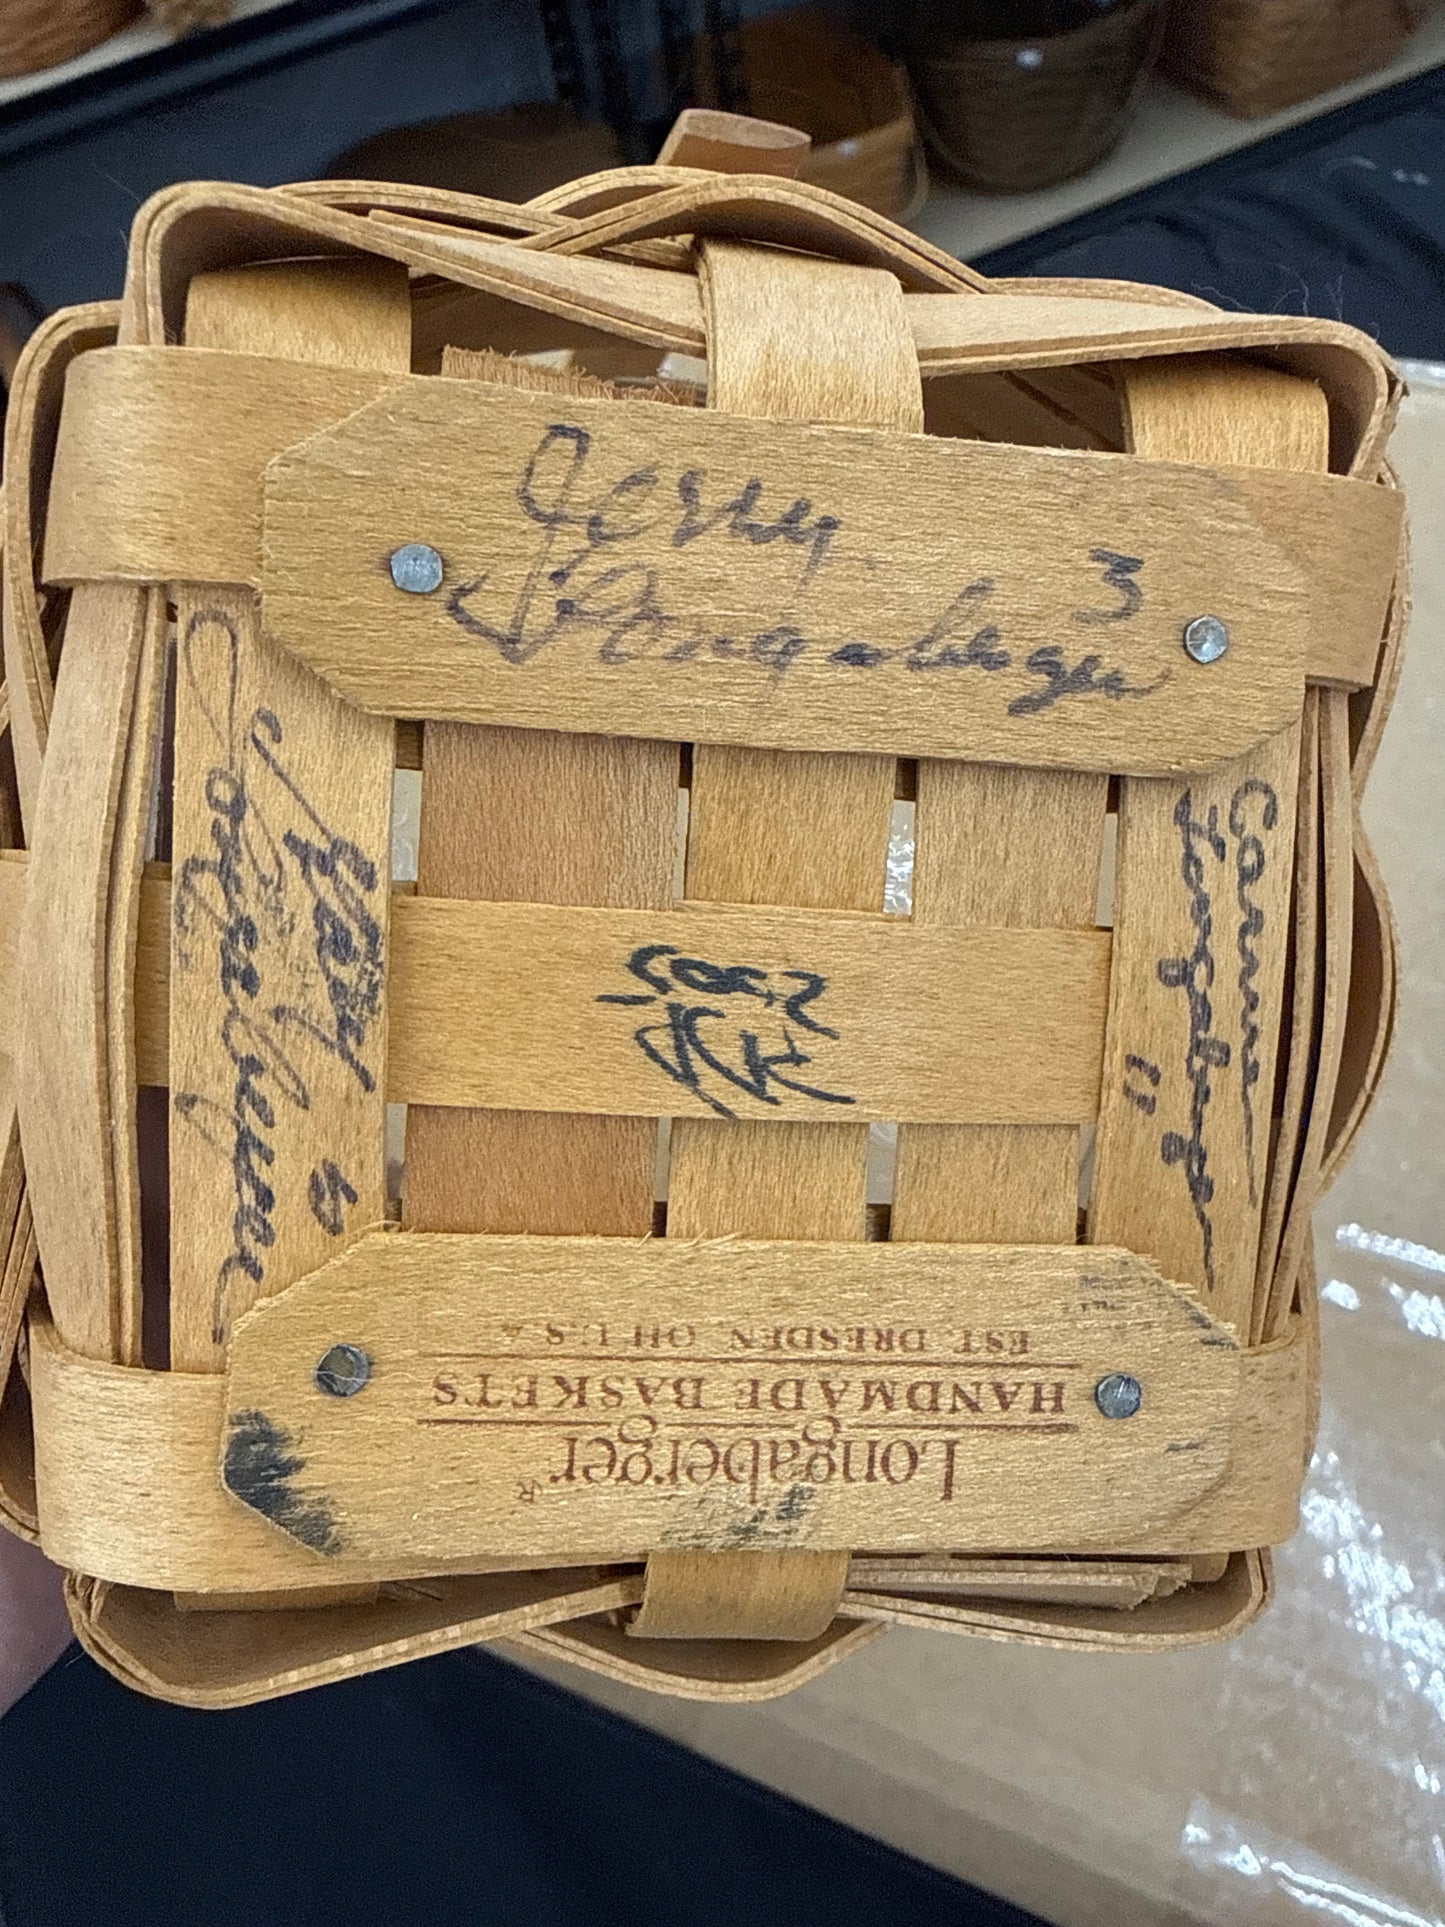 Jerry
Longaberger 3
"Gary"
Longaberger 6
Carmen
Longaberger
11
Longaberger®
HANDMADE BASKETS
EST. DRESDEN, OH U.S.A.